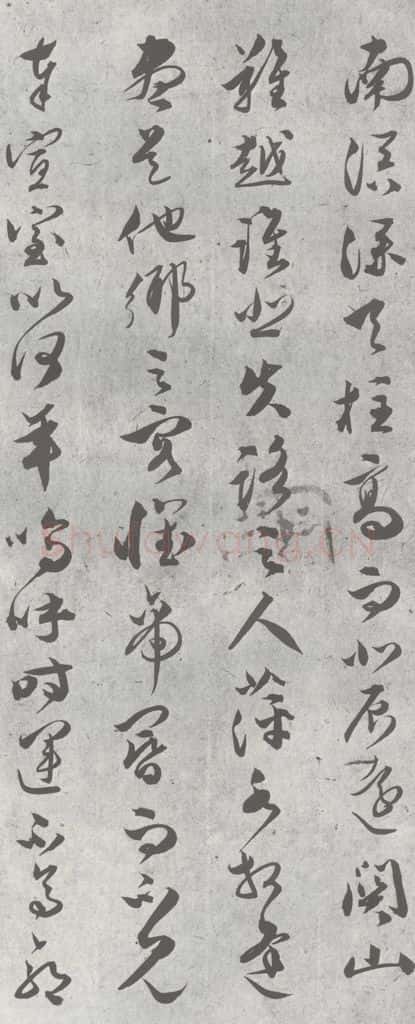 南溟深天柱高而北辰遠關山
難越誰悲失路之人萍水相逢
盡是他鄉之客懷帝閽而不見
奉宣室以何年嗚呼時運不齊命
shufawang.CN